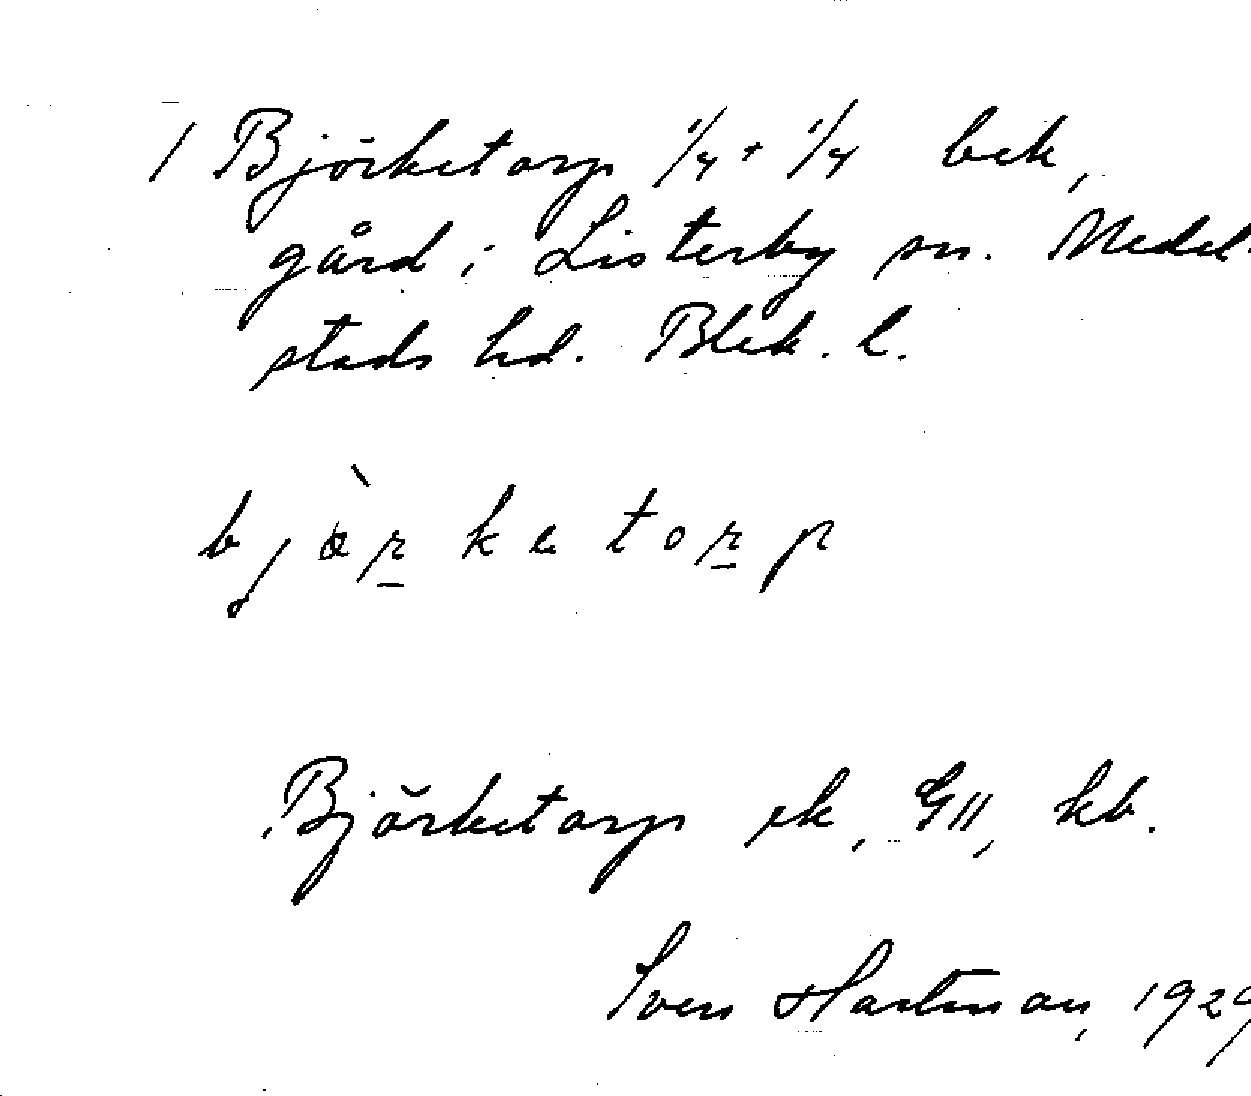 1 Björketorp 1/4 + 1/4 bek,
gård i Listerby sn. Medel-
stads hd. Blek. l.
bjæ̀r̲ketor̲p
Björketorp ek, GII, kb.
Sven Hartman, 1929